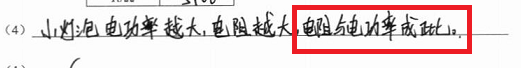 (4) 小灯泡电功率越大,电阻越大,电阻与电功率成正比。